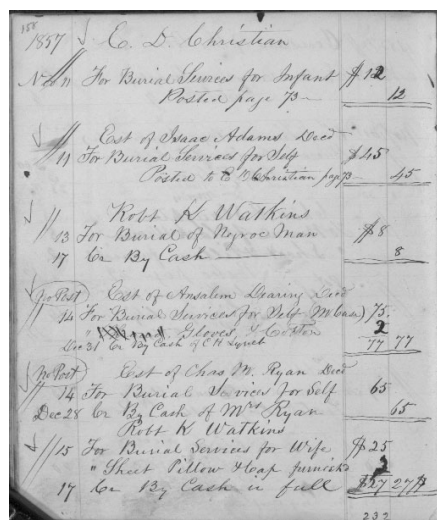 188
1857 E. D. Christian
Nov 11 For Burial Services for Infant $12
Posted page 73 — 12
Est of Isaac Adams Decd
11 For Burial Services for Self $45
Posted to E D Christian page 73 — 45
Robt K Watkins
13 For Burial of Negroe Man $8
17 Cr By Cash — 8
no Post Est of Ansalem Dearing Decd
14 For Burial Services for Self M Case) 75.
" Gloves & Cotton 2
Dec 31 Cr By Cash of C H Lynch 77 77
no Post Est of Chas M. Ryan Decd
14 For Burial Services for Self 65
Dec 28 Cr By Cash of Mrs Ryan 65
Robt K Watkins
15 For Burial Services for Wife $25
" Sheet Pillow & Cap furnishd 2
17 Cr By Cash in full $27 27
232